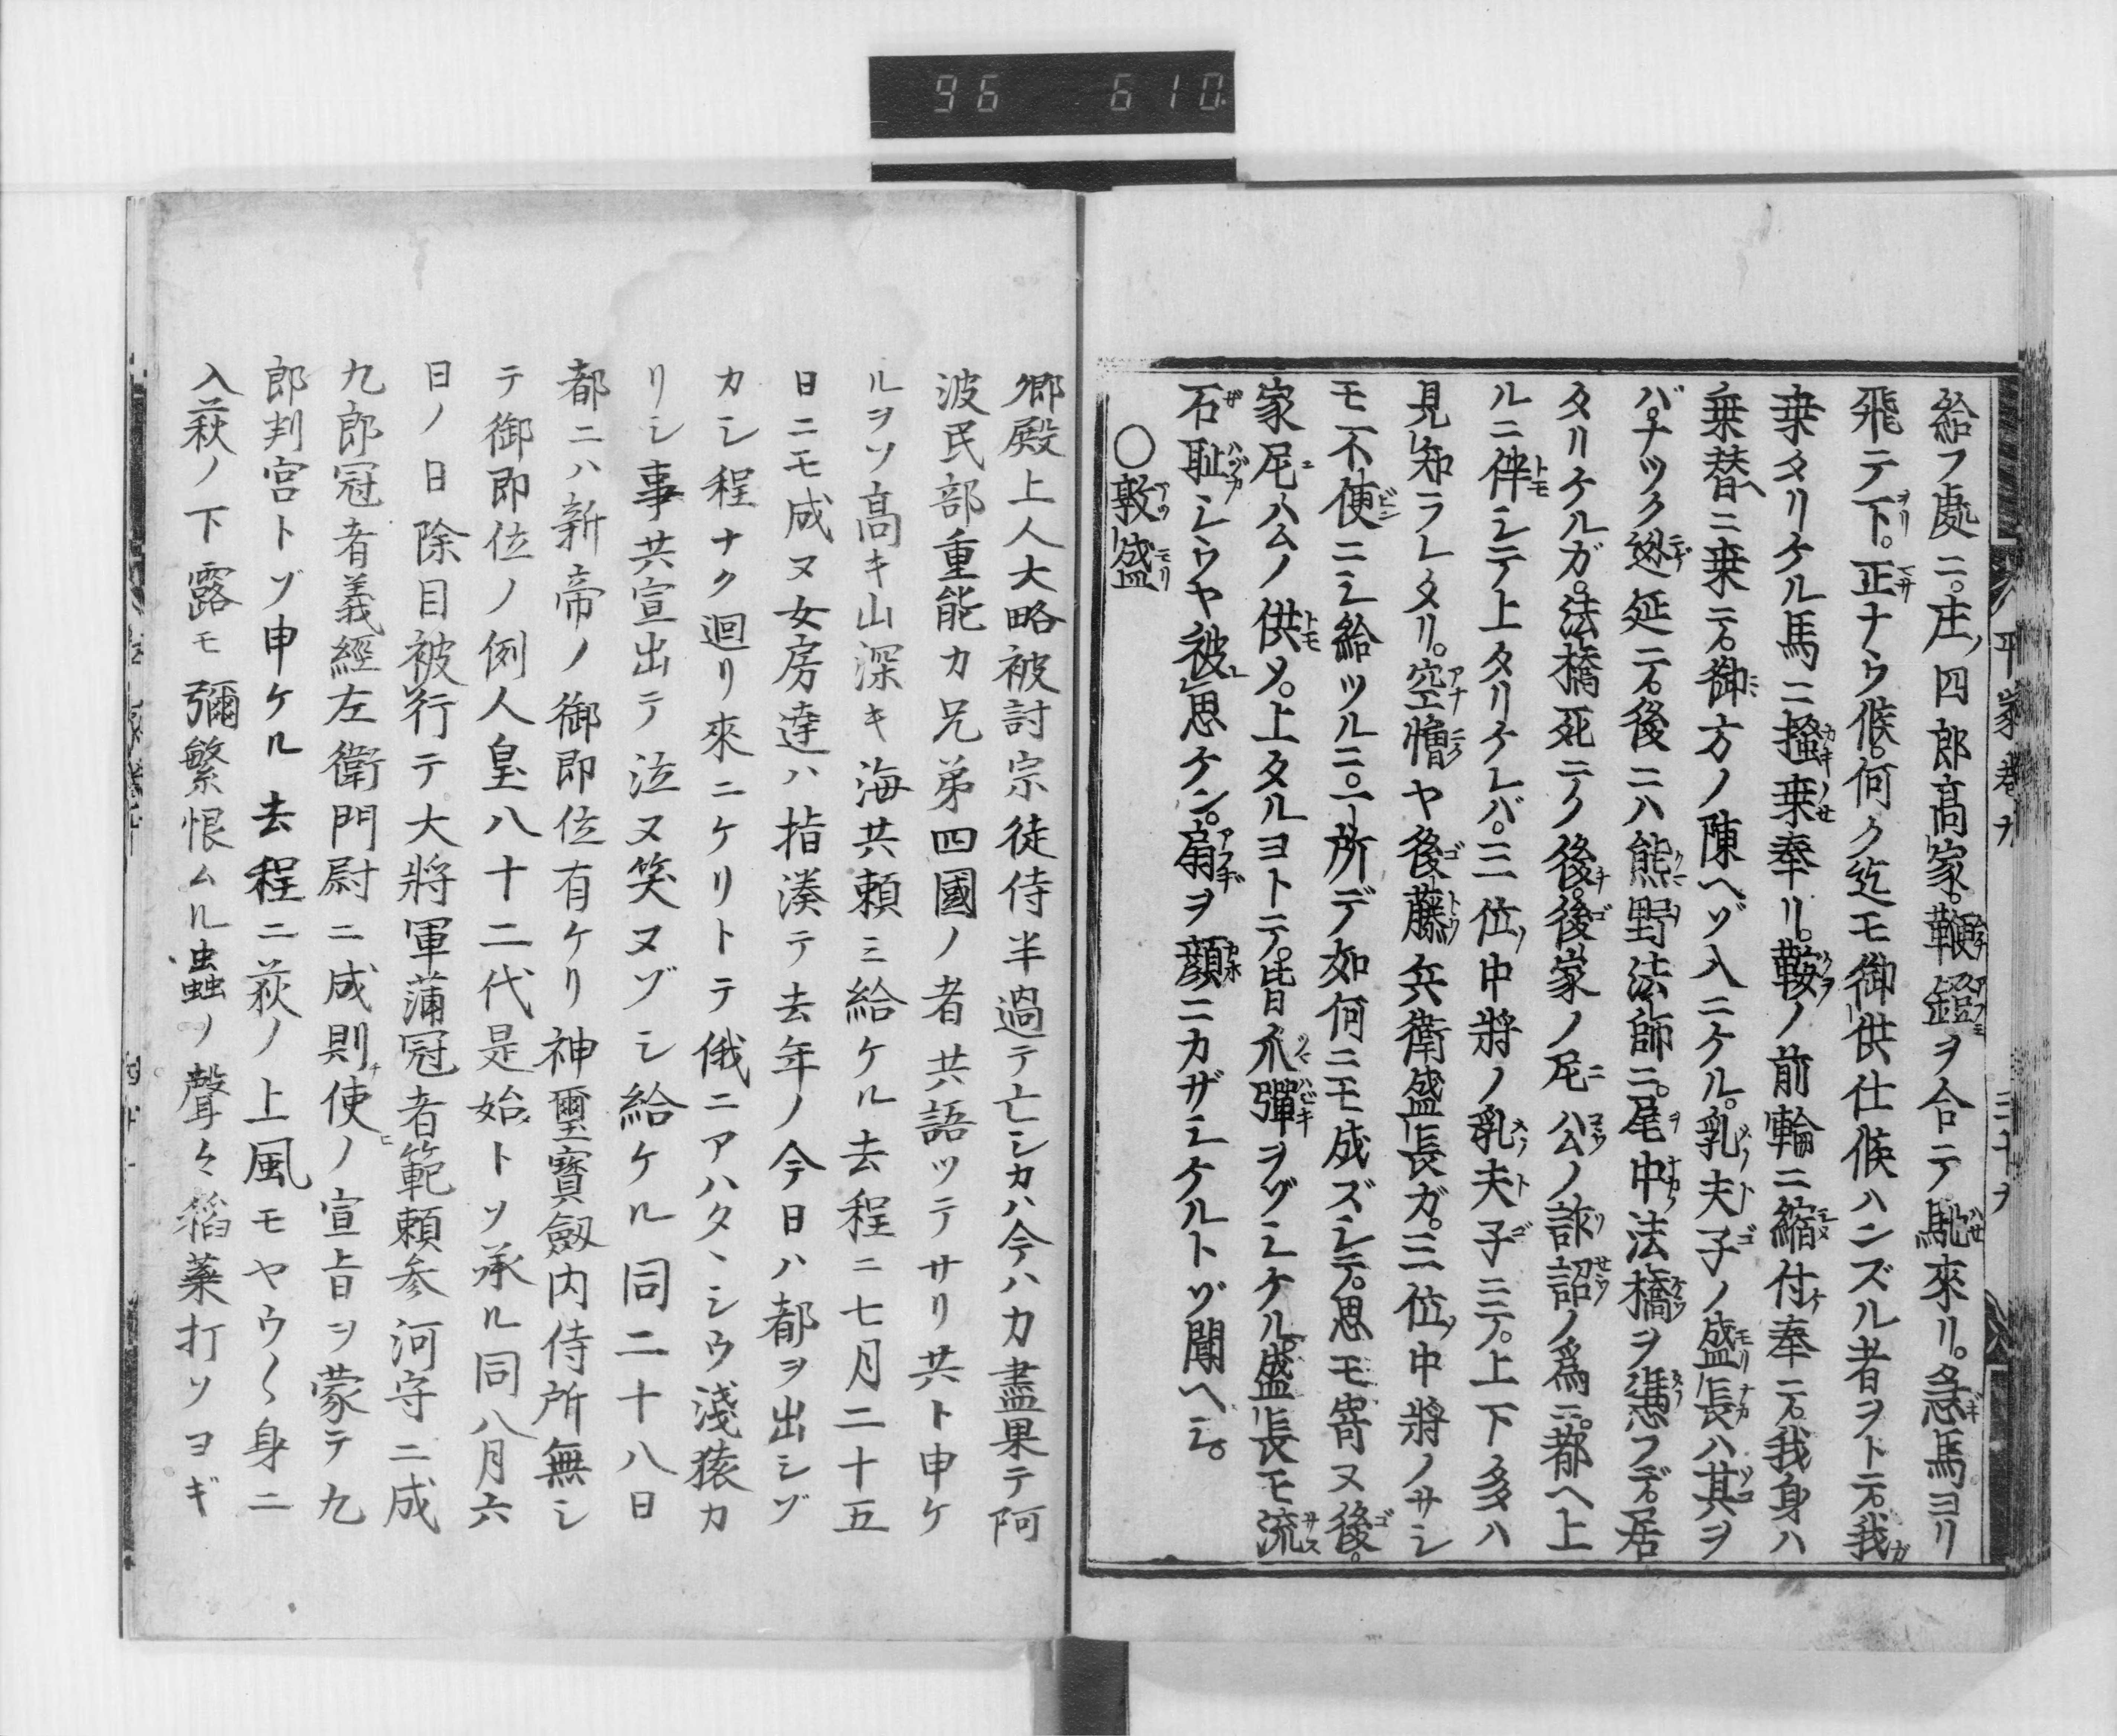 96 610
平家巻九 三十ヲ
給フ處ニ。庄ノ四郎髙家。鞭鐙ヲ合ニテ馳來リ。急馬ヨリ
飛テ下。正ナウ候。何ク迄モ御供仕候ハンズル者ヲトテ。我ガ
乗タリケル馬ニ掻乗奉リ。鞍ノ前輪ニ縮付奉テ。我身ハ
乗替ニ乗テ。御方ノ陳ヘゾ入ニケル。乳夫子ノ盛長ハ其ヲ
バ。ナツク迯延テ。後ニハ熊野法師ニ。尾中法橋ヲ憑フデ。居
タリケルガ。法橋死ニテノ後。後家ノ尼公ノ訴詔ノ爲ニ。都ヘ上
ルニ伴シテ上タリケレバ。三位ノ中將ノ乳夫子ニテ。上下多ハ
見知ラレタリ。空憎ヤ後藤兵衛盛長ガ。三位ノ中將ノサシ
モ不便ニシ給ツルニ。一所デ如何ニモ成ズシテ。思モ寄ヌ後。
家尼ハムノ供ソ。上タルヨトテ。皆爪彈ヲゾシケル。盛長モ流
石恥シウヤ被思ケン。扇ヲ顔ニカザシケルトゾ聞ヘシ。
〇敦盛
卿殿上人大略被討宗徒侍半過テ亡シカハ今ハカ盡果テ阿
波民部重能カ兄弟四國ノ者共語ツテサリ共ト申ケ
ルヲソ髙キ山深キ海共頼ミ給ケル去程ニ七月二十五
日ニモ成ヌ女房達ハ指湊テ去年ノ今日ハ都ヲ出シゾ
カシ程ナク迴リ來ニケリトテ俄ニアハタヽシウ淺猿カ
リシ事共宣出テ泣ヌ笑ヌゾシ給ケル同二十八日
都ニハ新帝ノ御即位有ケリ神璽寳劔内侍所無シ
テ御即位ノ例人皇八十二代是始トソ承ル同八月六
日ノ日除目被行テ大將軍蒲冠者範頼参河守ニ成
九郎冠者義經左衛門尉ニ成則使ノ宣旨ヲ蒙テ九
郎判官トゾ申ケル去程ニ荻ノ上風モヤウ〱身ニ
入萩ノ下露モ彌繁恨ムル蟲ノ聲々稻葉打ソヨギ